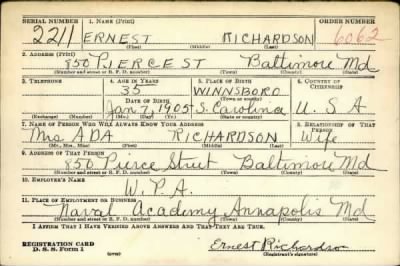 SERIAL NUMBER 1. NAME (Print) ORDER NUMBER
2211 ERNEST RICHARDSON 6062
(First) (Middle) (Last)
2. ADDRESS (Print)
850 PIERCE ST Baltimore Md
(Number and street or R. F. D. number) (Town) (County) (State)
3. TELEPHONE 4. AGE IN YEARS 5. PLACE OF BIRTH 6. COUNTRY OF CITIZENSHIP
35 WINNSBORO
DATE OF BIRTH (Town or county)
Jan 7, 1905 S. Carolina U. S. A
(Exchange) (Number) (Mo.) (Day) (Yr.) (State or country)
7. NAME OF PERSON WHO WILL ALWAYS KNOW YOUR ADDRESS 8. RELATIONSHIP OF THAT PERSON
Mrs ADA RICHARDSON Wife
(Mr., Mrs., Miss) (First) (Middle) (Last)
9. ADDRESS OF THAT PERSON
850 Pierce Street Baltimore Md
(Number and street or R. F. D. number) (Town) (County) (State)
10. EMPLOYER'S NAME
W. P. A.
11. PLACE OF EMPLOYMENT OR BUSINESS
Naval Academy Annapolis Md
(Number and street or R. F. D. number) (Town) (County) (State)
I AFFIRM THAT I HAVE VERIFIED ABOVE ANSWERS AND THAT THEY ARE TRUE.
REGISTRATION CARD
D. S. S. Form 1 Ernest Richardson
(Registrant's signature)